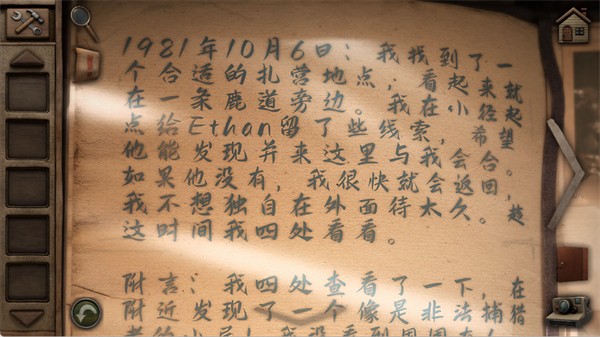 1981年10月6日：我找到了一
个合适的扎营地点，看起来就
在一条鹿道旁边。我在小径起
点给Ethan留了些线索，希望
他能发现并来这里与我会合。
如果他没有，我很快就会返回，
我不想独自在外面待太久。趁
这时间我四处看看。
附言：我四处查看了一下，在
附近发现了一个像是非法捕猎
者的小屋！我没看到周围有人